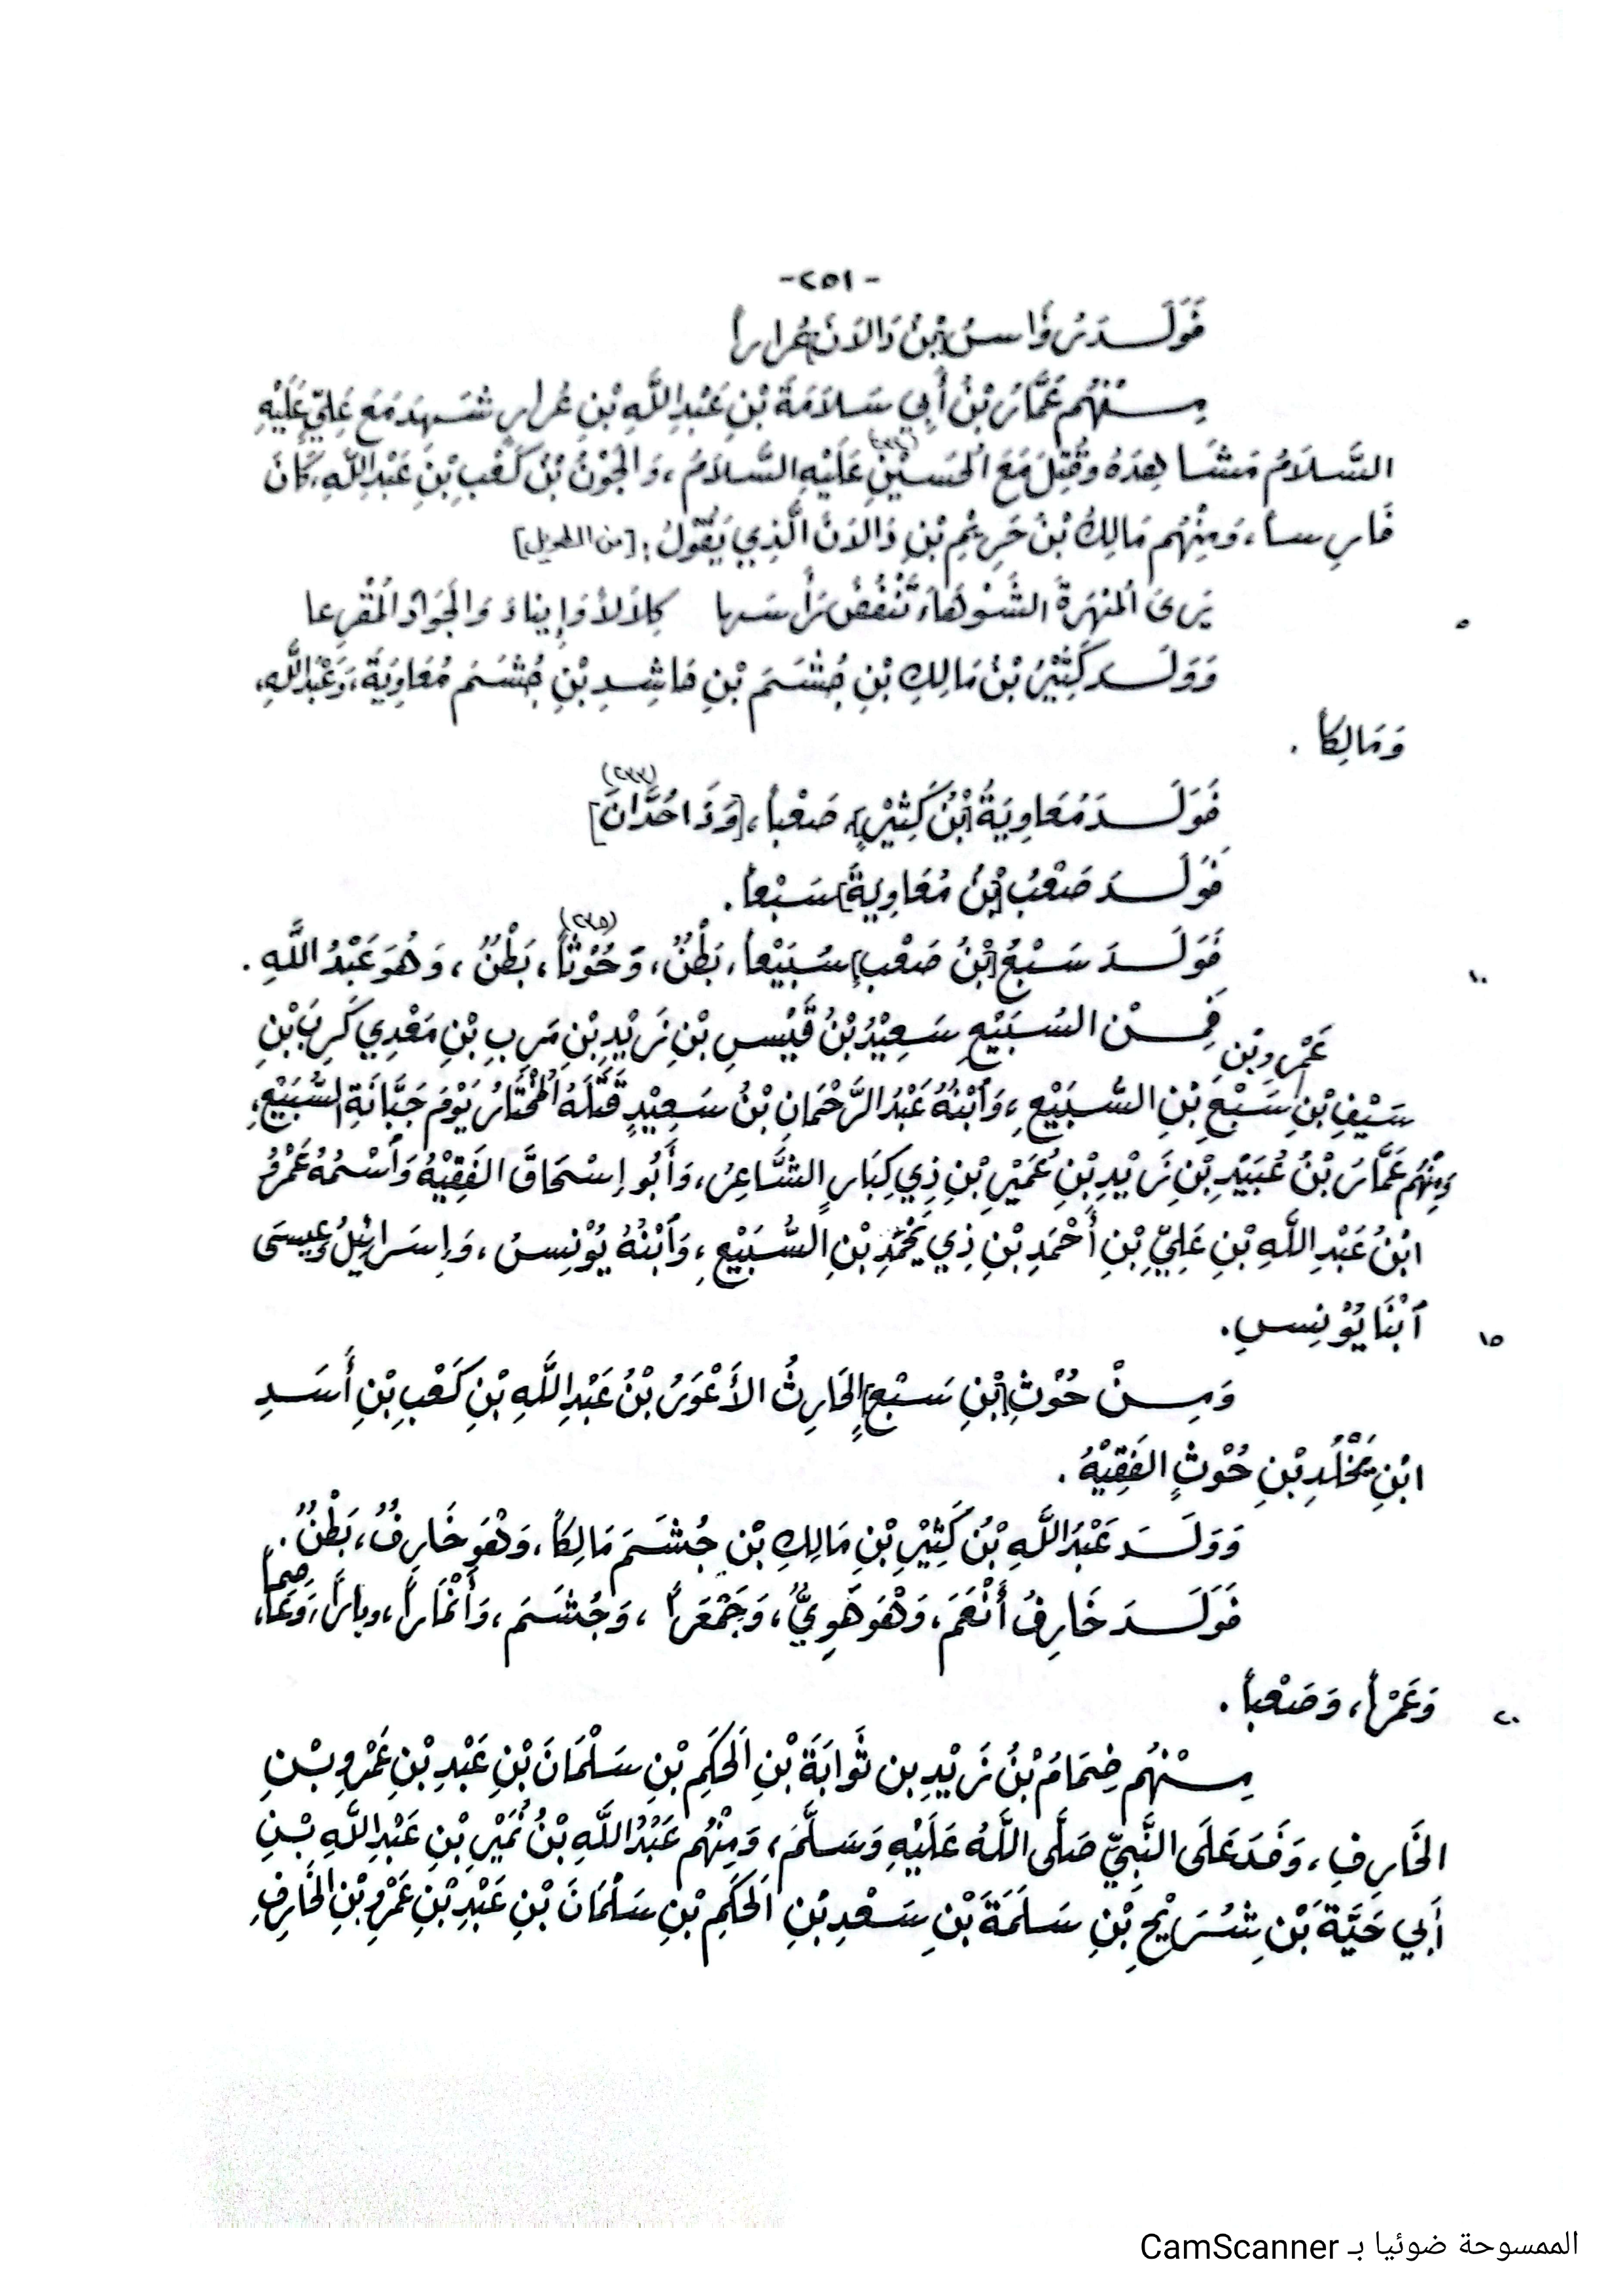 -٢٥١-
فَوَلَدَ رُؤَاسُ [بْنُ دَالَانَ] عُرَاراً
مِنْهُم عَمَّارُ بْنُ أَبِي سَلَامَةَ بْنِ عَبْدِ اللَّهِ بْنِ عُرَارٍ شَهِدَ مَعَ عَلِيٍّ عَلَيْهِ
السَّلَامُ مَشَاهِدَهُ وَقُتِلَ مَعَ الحُسَيْنِ عَلَيْهِ السَّلَامُ، وَالجَوْنُ بْنُ كَعْبِ بْنِ عَبْدِ اللَّهِ، كَانَ
فَارِساً، وَمِنْهُم مَالِكُ بْنُ حَرِيْمِ بْنِ دَالَانَ الَّذِي يَقُوْلُ: [من الطويل]
يَرَى المُهْرَةَ الشَّوْهَاءَ تَنْفُضُ رَأْسَهَا كِلَالاً وَإِينَاءً وَالجَوَادَ المُقْرِعا
٥
وَوَلَدَ كَثِيْرُ بْنُ مَالِكِ بْنِ جُشَمَ بْنِ حَاشِدِ بْنِ جُشَمَ مُعَاوِيَةَ، وَعَبْدَ اللَّهِ،
وَمَالِكاً.
(٢٣٣)
فَوَلَدَ مُعَاوِيَةُ [بْنُ كَثِيْرٍ] صَعْباً، [وَذَا حُدَّانَ]
فَوَلَدَ صَعْبُ [بْنُ مُعَاوِيَةَ] سَبْعاً.
(٢٣٥)
فَوَلَدَ سَبْعُ [بْنُ صَعْبٍ] سُبَيْعاً، بَطْنٌ، وَحُوْثاً، بَطْنٌ، وَهُوَ عَبْدُ اللَّهِ.
١٠
فَمِنْ السُّبَيْعِ سَعِيْدُ بْنُ قَيْسِ بْنِ زَيْدِ بْنِ مَرِبِ بْنِ مَعْدِي كَرِبَ بْنِ
عَمْرِو بْنِ
سَيْفِ بْنِ سَبْعِ بْنِ السُّبَيْعِ، وَٱبْنُهُ عَبْدُ الرَّحْمَانِ بْنُ سَعِيْدٍ قَتَلَهُ المُخْتَارُ يَوْمَ جَبَّانَةِ السُّبَيْعِ،
وَمِنْهُم عَمَّارُ بْنُ عُبَيْدِ بْنِ زَيْدِ بْنِ عُمَيْرِ بْنِ ذِي كِبَارٍ الشَّاعِرُ، وَأَبُو إِسْحَاقَ الفَقِيْهُ وَٱسْمُهُ عَمْرُو
ابْنُ عَبْدِ اللَّهِ بْنِ عَلِيِّ بْنِ أَحْمَدِ بْنِ ذِي يُحْمِدَ بْنِ السُّبَيْعِ، وَٱبْنُهُ يُوْنِسُ، وَإِسْرَائِيلُ وَعِيسَى
ٱبْنَا يُوْنِسِ.
١٥
وَمِنْ حُوْثِ [بْنِ سَبْعٍ] الحَارِثُ الأَعْوَرُ بْنُ عَبْدِ اللَّهِ بْنِ كَعْبِ بْنِ أَسَدِ
ابْنِ يَخْلُدِ بْنِ حُوْثٍ الفَقِيْهُ.
وَوَلَدَ عَبْدُ اللَّهِ بْنُ كَثِيْرِ بْنِ مَالِكِ بْنِ جُشَمَ مَالِكاً، وَهْوَ خَارِفُ، بَطْنٌ.
فَوَلَدَ خَارِفُ أَنْعَمَ، وَهْوَ هَوِيٌّ، وَجَمْعَراً، وَجُشَمَ، وَأَنْمَاراً،
وَعَمْراً، وَصَعْباً.
٢٠
مِنْهُم ضِمَامُ بْنُ زَيْدِ بن ثَوَابَةَ بْنِ الحَكَمِ بْنِ سَلْمَانَ بْنِ عَبْدِ بْنِ عَمْرِو بْنِ
الخَارِفِ، وَفَدَ عَلَى النَّبِيِّ صَلَّى اللَّهُ عَلَيْهِ وَسَلَّمَ، وَمِنْهُم عَبْدُ اللَّهِ بْنُ نُمَيْرِ بْنِ عَبْدِ اللَّهِ بْنِ
أَبِي حَيَّةَ بْنِ شُرَيْحِ بْنِ سَلَمَةَ بْنِ سَعْدِ بْنِ الحَكَمِ بْنِ سَلْمَانَ بْنِ عَبْدِ بْنِ عَمْرِو بْنِ الخَارِفِ
الممسوحة ضوئيا بـ CamScanner